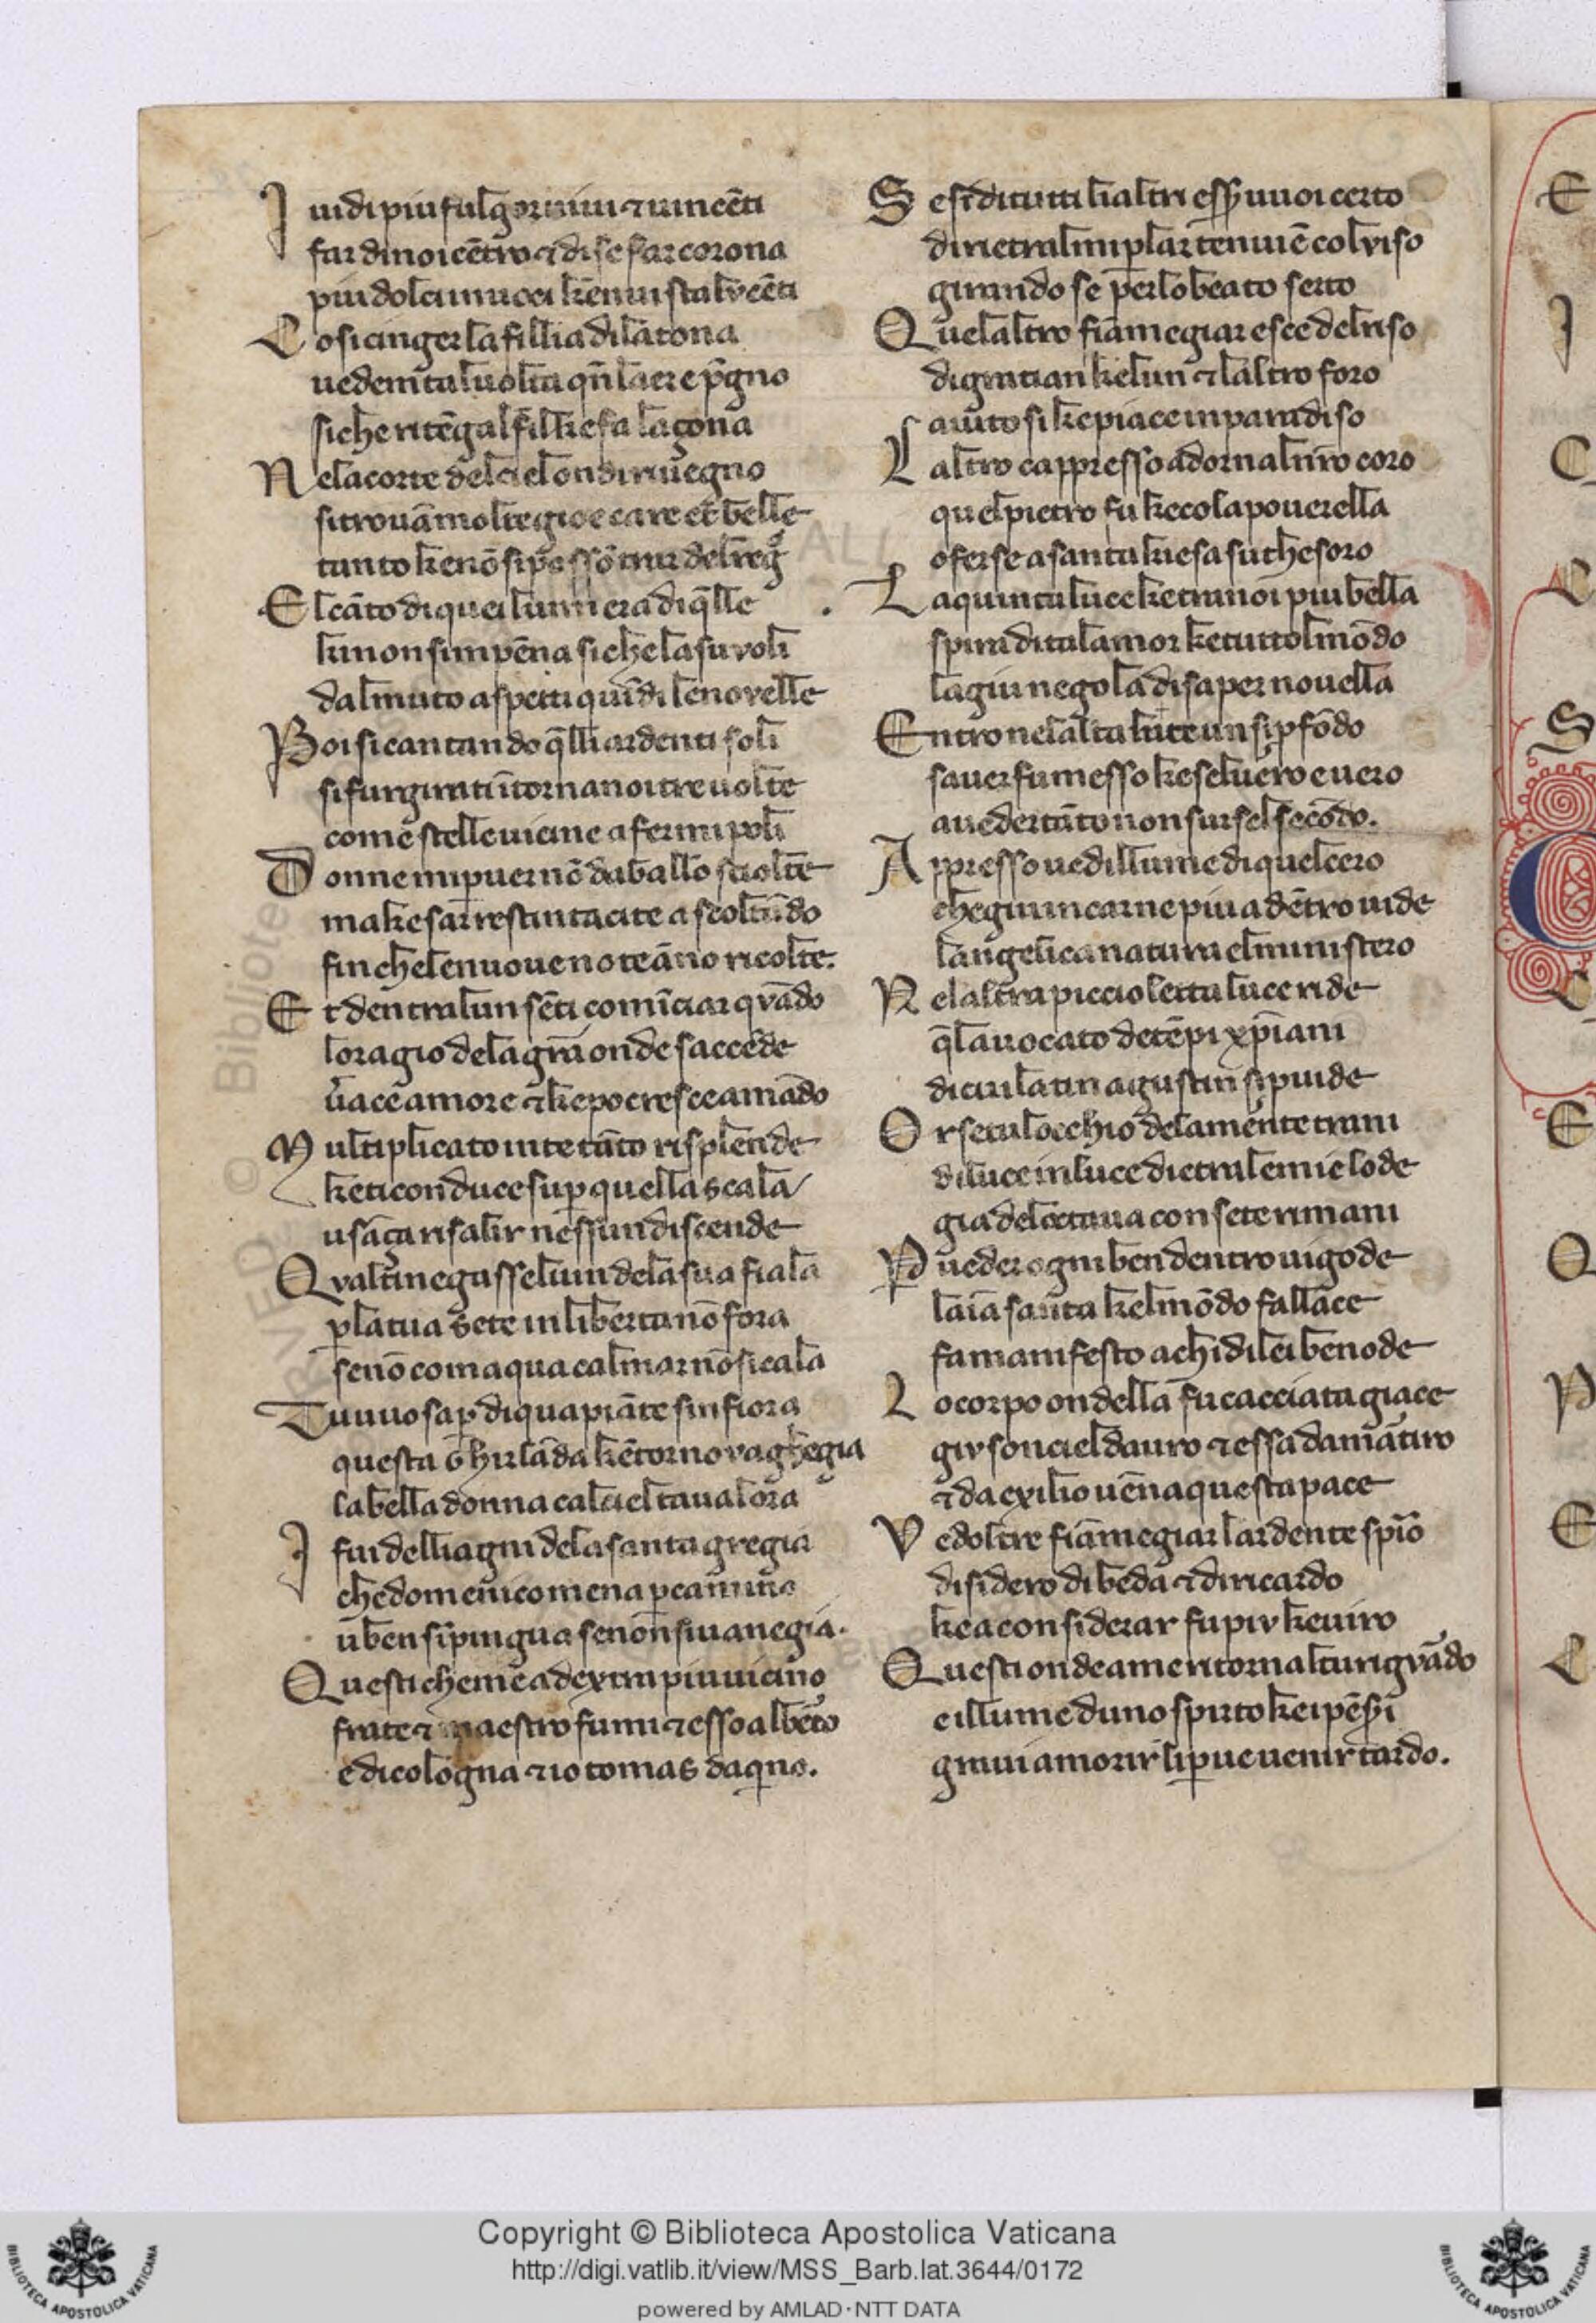 I uidi piu fulgor uiui ⁊ uincēti
far di noi cētro ⁊ di se far corona
piu dolci in uoci kēnuista lvcēti
C osi cinger la fillia di latona
uedemtaluolta qñ laere p̄gno
si che ritēgal fil ke fa la çona
N ela corte del ciel ondi riuegno
si trouā molte gioe care et belle
tanto ke nō si possō trar del regͦ
E l cāto di quei lumi era di q̄lle
ki non simpēna si che la su voli
dal muto aspetti quīdi le novelle
P oi si cantando q̄lli ardenti soli
si fur girati ītorna noi tre uolte
come stelle uicine a fermi poli
D onne mi paruer nō da ballo sciolte
ma ke sarrestin tacite ascoltādo
fin che le nuoue note āno ricolte.
E t dentral un sēti comīciar qvādo
lo ragio dela grā onde saccēde
ūace amore ⁊ ke po cresce amādo
M ultiplicato in te tāto risplende
ke ti conduce sup quella scala
u sāça risalir nessun discende
Q val ti negasse l uin dela sua fiala
p la tua sete in liberta nō fora
se nō comaqua cal mar nō si cala
T u uuo sap di qua piāte sinfiora
questa ghirlāda kētorno vaghegia
la bella donna cal ciel tavalora
I fui delli agni dela santa gregia
che domenico mena p camino
u ben si pingua se non si uanegia.
Q uesti che mē a dextra piu uicino
frate ⁊ maestro fumi ⁊ esso alb̄to
e di cologna ⁊ io tomas daqno.
S e si di tutti li altri ess̄ uuoi certo
diretral mi plar tenuiē col viso
girando se per lo beato serto
Q uelaltro fiāmegiar esce del riso
di gratian ke lun ⁊ laltro foro
aiuto si ke piace in paradiso
L altro cappresso adornal nr̄o coro
quel pietro fu ke cola pouerella
oferse a santa kiesa su thesoro
L a quinta luce ke tra noi piu bella
spira di tal amor ke tuttol mōdo
la giu negola di saper nouella
E ntro nelalta luce u si p̄fōdo
sauer fu messo ke sel uero e uero
a ueder tāto non surse l secōdo.
A ppresso uedil lume di quel cero
che giu in carne piu a dētro uide
langelica natura el ministero
N elaltra piccioletta luce ride
q̄lauocato de tēpi xp̄iani
di cui latin agustin si p̄uide
O r se tu lochio dela mente trani
di luce in luce dietrale mie lode
gia del octaua con sete rimani
P ueder ogni ben dentro ui gode
laīa santa kel mōdo fallace
fa manifesto a chi di lei ben ode
L o corpo ondella fu cacciata giace
giv so in cieldauro ⁊ essa da mātiro
⁊ da exilio uēna questa pace
V edoltre fiāmegiar lardente spīo
disidero di beda ⁊ di ricardo
ke a considerar fu piv ke uiro
Q uesti onde a me ritornal tu rigvādo
e il lume duno spirto kei pēsi
graui a morir li pue uenir tardo.
Copyright © Biblioteca Apostolica Vaticana
http://digi.vatlib.it/view/MSS_Barb.lat.3644/0172
powered by AMLAD·NTT DATA